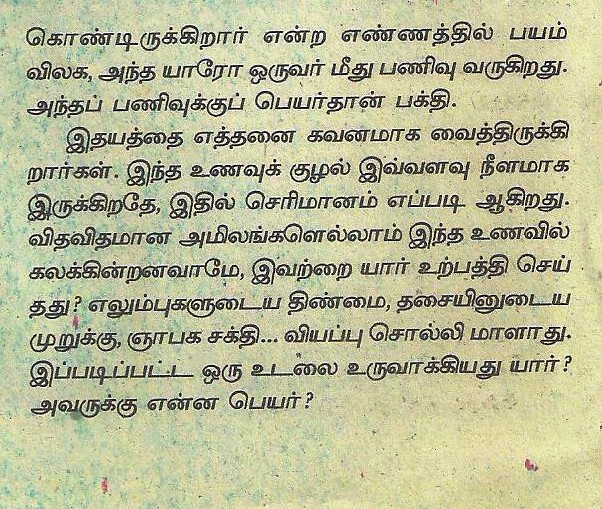 கொண்டிருக்கிறார் என்ற எண்ணத்தில் பயம்
விலக, அந்த யாரோ ஒருவர் மீது பணிவு வருகிறது.
அந்தப் பணிவுக்குப் பெயர்தான் பக்தி.
இதயத்தை எத்தனை கவனமாக வைத்திருக்கி
றார்கள். இந்த உணவுக் குழல் இவ்வளவு நீளமாக
இருக்கிறதே, இதில் செரிமானம் எப்படி ஆகிறது.
விதவிதமான அமிலங்களெல்லாம் இந்த உணவில்
கலக்கின்றனவாமே, இவற்றை யார் உற்பத்தி செய்
தது? எலும்புகளுடைய திண்மை, தசையினுடைய
முறுக்கு, ஞாபக சக்தி... வியப்பு சொல்லி மாளாது.
இப்படிப்பட்ட ஒரு உடலை உருவாக்கியது யார்?
அவருக்கு என்ன பெயர்?